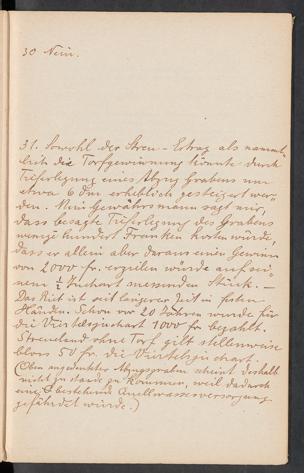 30 Nein.
31. Sowohl der Streu-Ertrag als nament-
lich die Torfgewinnung könnte durch
Tieferlegung eines Abzug Grabens um
etwa 6 dm erheblich gesteigert wer-
den. Mein Gewährsmann sagt mir,
dass besagte Tieferlegung des Grabens
wenige hundert Franken kosten würde,
dass er allein aber daraus einen Gewinn
von 2000 fr. erzielen würde auf sei-
nem ½ Juchart messenden Stück. —
Das Riet ist seit längerer Zeit in festen
Händen. Schon vor 20 Jahren wurde für
die Viertelsjuchart 1000 fr bezahlt.
Streueland ohne Torf gilt stellenweise
bloss 50 fr. die Viertelsjuchart.
(Oben angedeuteter Abzugsgraben scheint deshalb
nicht zu stande zu kommen, weil dadurch
eine bestehende Quellwasserversorgung
gefährdet würde.)